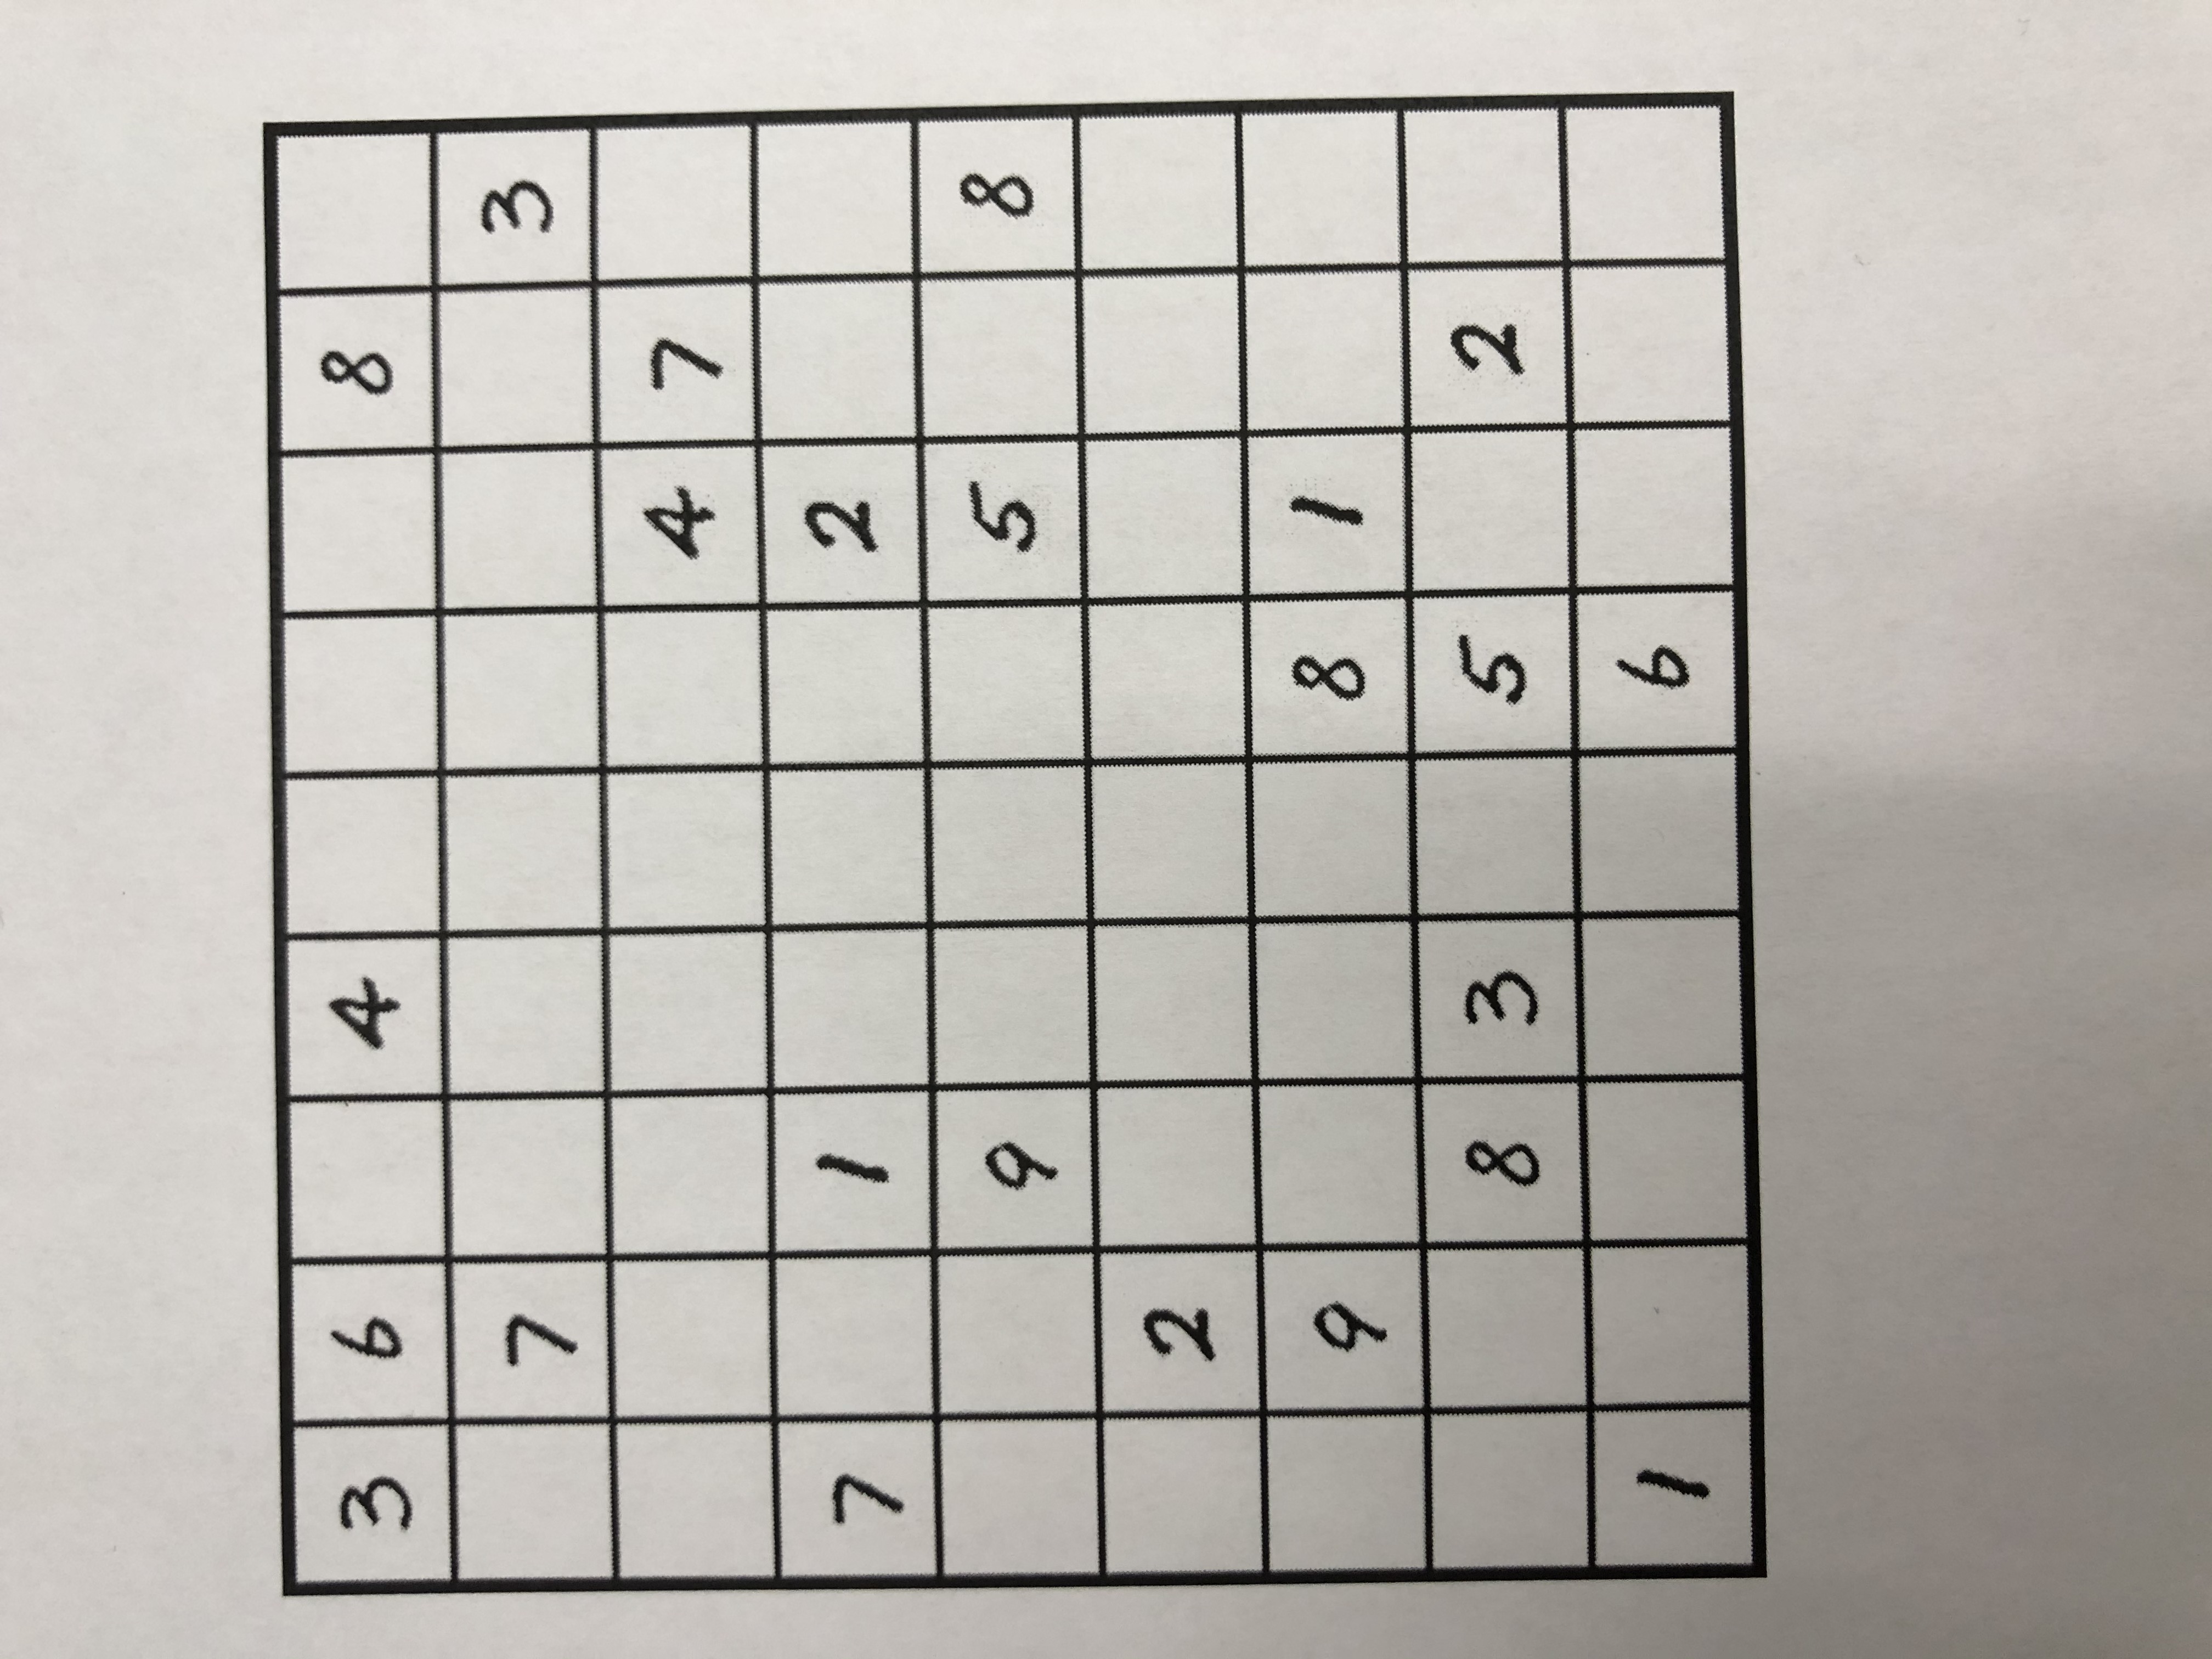 3 6 4 8
7 3
4 7
7 1 2
9 5 8
2
9 8 1
8 3 5 2
1 6